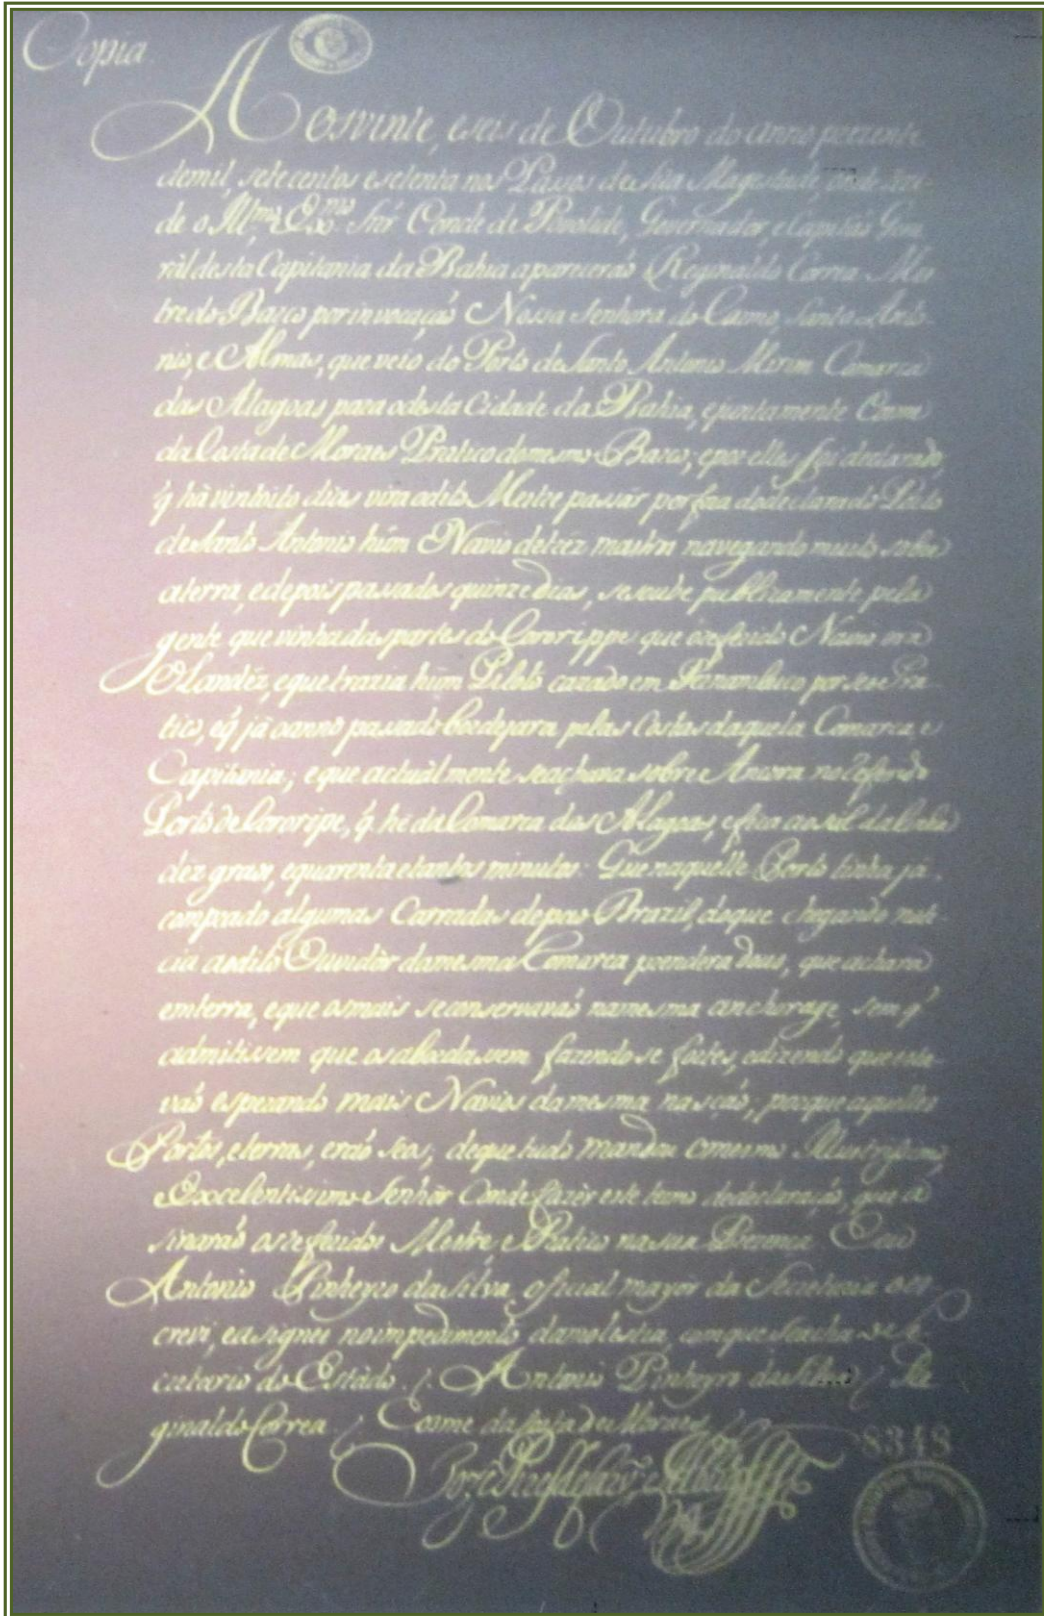 Copia.
Aos vinte, e seis de Outubro do anno prezente
demil, sete centos e setenta nos Passos de Sua Magestade, onde rezi-
de o Ill.mo, e Ex.mo Snr. Conde de Povolide, Governador, e Capitaó Gene
ral desta Capitania da Bahia apareceraó Reginaldo Correa Mes
tre do Barco por invocaçaó Nossa Senhora do Carmo, Santo Anto-
nio, e Almas, que veio do Porto de Santo Antonio Merim Comarca
das Alagoas para o desta Cidade da Bahia, e juntamente Cosme
da Costa de Moraes Pratico do mesmo Barco; e por elles foi declarado,
q̃ há vinte oito dias vira o dito Mestre passar por fora do declarado Porto
de Santo Antonio húm Navio de tréz mastros navegando muito sobre
a terra, e depois passados quinze dias, se soube publicamente pela
gente que vinha das partes do Cororippe que o referido Navio era
Olandéz, e que trazia húm Piloto cazado em Pernambuco por seo Pra-
tico, e q̃ já o anno passado bordejara pelas Costas daquela Comarca, e
Capitania; e que actuálmente se achava sobre Ancora no referido
Porto de Cororipe, q̃ hé da Comarca das Alagoas, e fica ao sul da Linha
déz graos, e quarenta e tantos minutos: Que naquelle Porto tinha já
comprado algumas Carradas de pao Brazil, do que chegando noti-
cia ao dito Ouvidór da mesma Comarca prendera dous, que achara
em terra, e que os mais se conservavaó na mesma anchorage, sem q̃
admitissem que os abordassem fazendo se fortes, e dizendo que esta-
vaó esperando mais Navios da mesma nasçaó, porque aquelles
Portos, e terras, eraó seos; de que tudo mandou o mesmo Illustrissimo,
e Excelentissimo Senhór Conde fazér este termo de declaraçaó, que a
sinaraó os referidos Mestre, e Pratico na sua Prezença. E eu
Antonio Pinheyro da Silva, oficial mayor da Secretaria o es
crevi, e asignei no impedimento da molestia, com que se acha o Se
cretario do Estádo. /. Antonio Pinheyro da Silva / Re
ginaldo Correa / Cosme da Costa de Moraes /
8348